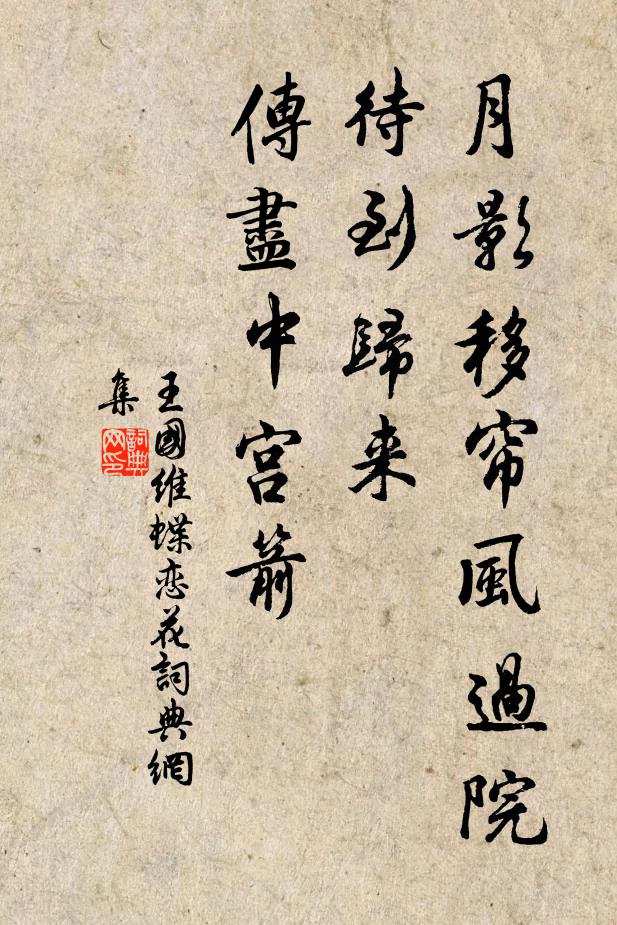 月影移帘風過院
待到歸来
傳盡中宮箭
王國維蝶恋花詞典網
集
詞典網印